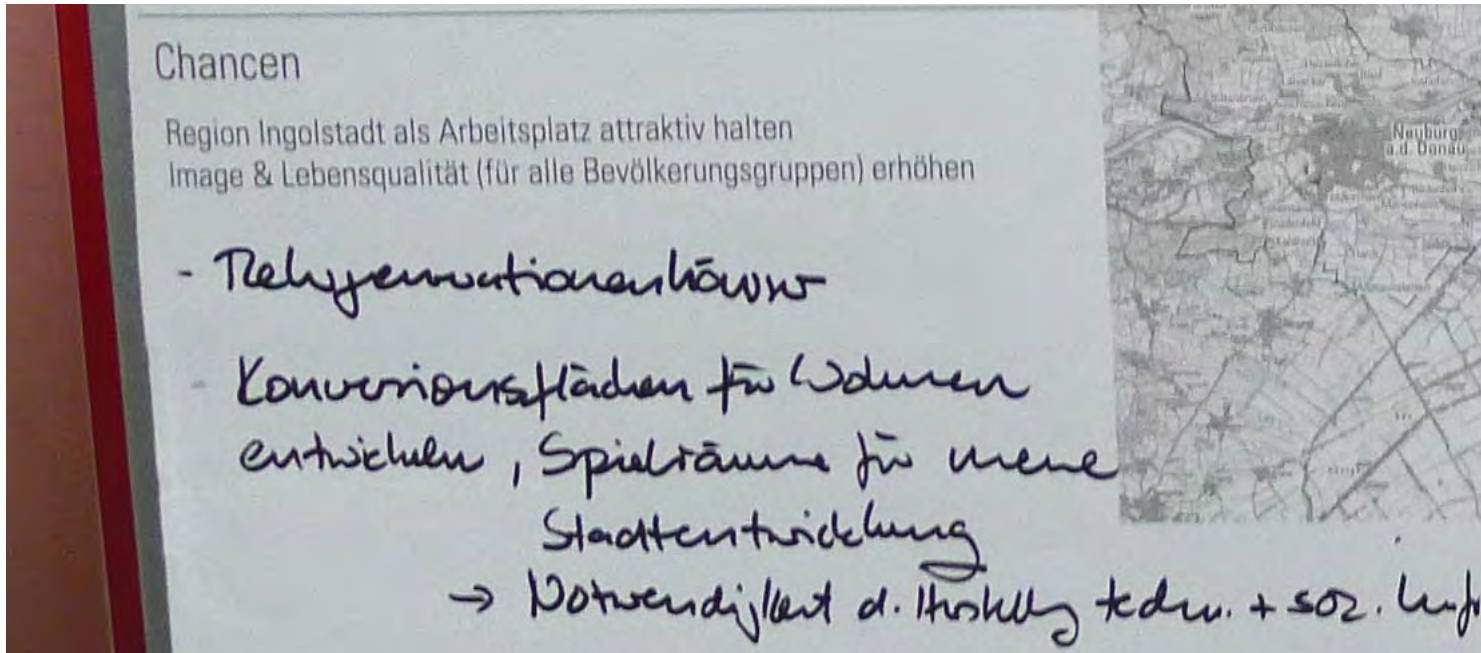 Chancen
Region Ingolstadt als Arbeitsplatz attraktiv halten
Image & Lebensqualität (für alle Bevölkerungsgruppen) erhöhen
Neuburg
a.d. Donau
- Mehrgenerationenhäuser
- Konversionsflächen für Wohnen
entwickeln, Spielräume für neue
Stadtentwicklung
→ Notwendigkeit d. Herstellg techn. + soz.